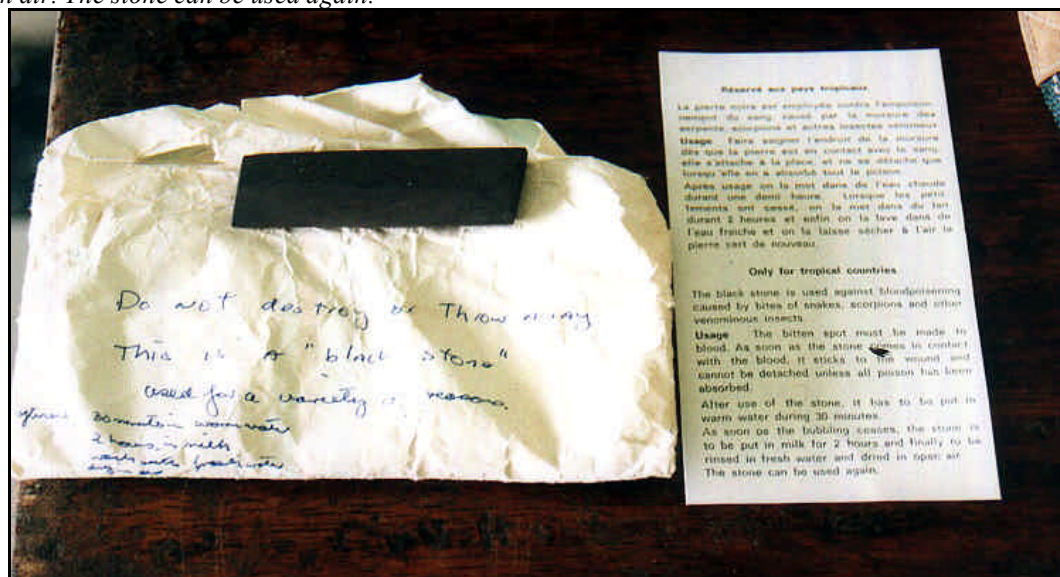 n air. The stone can be used again.
Do not destroy or throw away
This is a "black stone"
used for a variety of reasons.
30 minutes in warm water
2 hours in milk
wash with fresh water
Réservé aux pays tropicaux
La pierre noire est employée contre l'empoison-
nement du sang causé par la morsure des
serpents, scorpions et autres insectes venimeux
Usage Faire saigner l'endroit de la morsure
dès que la pierre est en contact avec le sang,
elle s'attache à la place, et ne se détache que
lorsqu'elle en a absorbé tout le poison.
Après usage on la met dans de l'eau chaude
durant une demi heure. Lorsque les petil-
lements ont cessé, on la met dans du lait
durant 2 heures et enfin on la lave dans de
l'eau fraîche et on la laisse sécher à l'air la
pierre sert de nouveau.
Only for tropical countries
The black stone is used against bloodpoisening
caused by bites of snakes, scorpions and other
venominous insects.
Usage The bitten spot must be made to
blood. As soon as the stone comes in contact
with the blood, it sticks to the wound and
cannot be detached unless all poison has been
absorbed.
After use of the stone, it has to be put in
warm water during 30 minutes.
As soon as the bubbling ceases, the stone is
to be put in milk for 2 hours and finally to be
rinsed in fresh water and dried in open air
The stone can be used again.